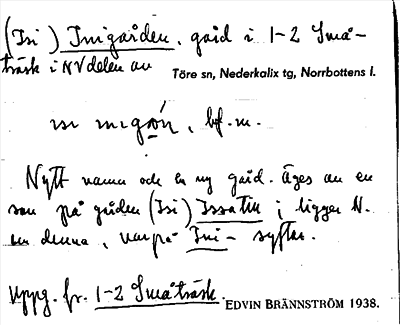 (Isi) Inigården, gård i 1-2 Små-
träsk i NV delen av
Töre sn, Nederkalix tg, Norrbottens l.
bf. m.
Nytt namn och en ny gård. Äges av en
son på gården (Isi) Issatin i ligger N.
om denna, varpå Ini- syftar.
Uppg. fr. 1-2 Småträsk.
EDVIN BRÄNNSTRÖM 1938.